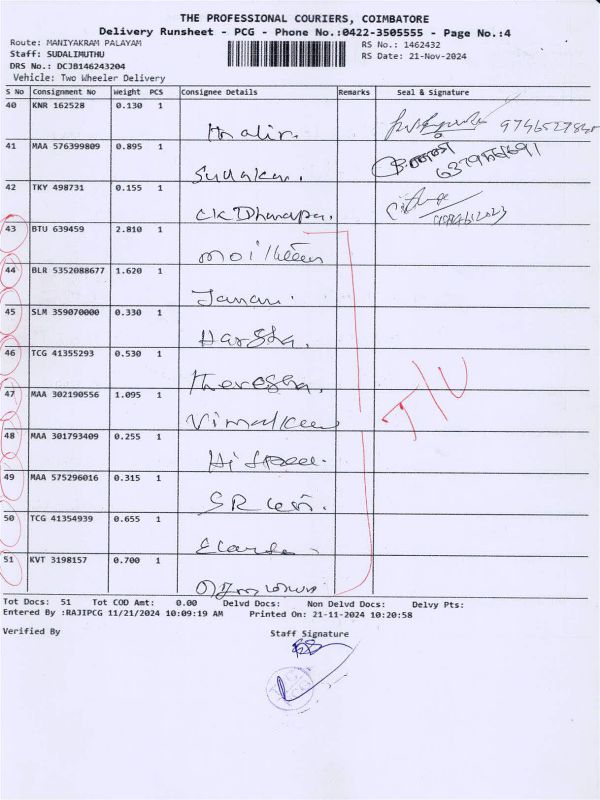 THE PROFESSIONAL COURIERS, COIMBATORE
Delivery Runsheet - PCG - Phone No.:0422-3505555 - Page No.:4
Route: MANIYAKRAM PALAYAM RS No.: 1462432
Staff: SUDALIMUTHU RS Date: 21-Nov-2024
DRS No.: DCJB146243204
Vehicle: Two Wheeler Delivery
S No Consignment No Weight PCS Consignee Details Remarks Seal & Signature
40 KNR 162528 0.130 1
41 MAA 576399809 0.895 1
Sudakar.
42 TKY 498731 0.155 1
CK Dhanapa.
43 BTU 639459 2.810 1
44 BLR 5352088677 1.620 1
Janani.
45 SLM 359070000 0.330 1
Harsha.
46 TCG 41355293 0.530 1
47 MAA 302190556 1.095 1
48 MAA 301793409 0.255 1
49 MAA 575296016 0.315 1
SR
50 TCG 41354939 0.655 1
51 KVT 3198157 0.700 1
Tot Docs: 51 Tot COD Amt: 0.00 Delvd Docs: Non Delvd Docs: Delvy Pts:
Entered By :RAJIPCG 11/21/2024 10:09:19 AM Printed On: 21-11-2024 10:20:58
Verified By Staff Signature